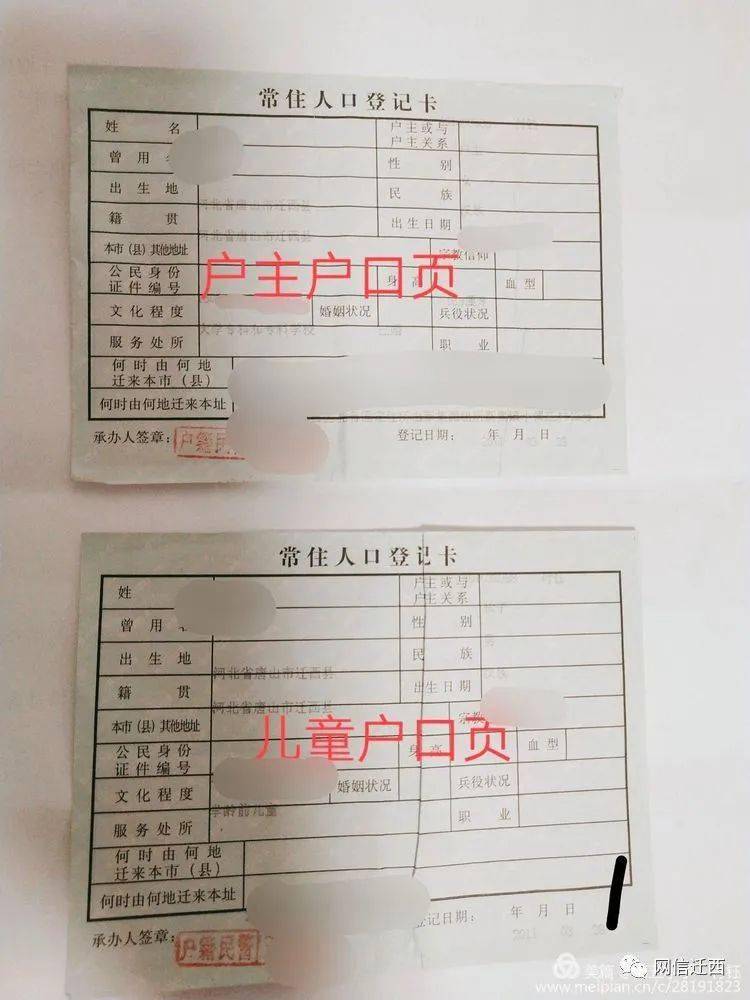 常住人口登记卡
姓 名 户主或与户主关系
曾用 性 别
出生地 河北省唐山市迁西县 民 族
籍 贯 河北省唐山市迁西县 出生日期
本市（县）其他地址 宗教信仰
公民身份证件编号 身 高 血型
户主户口页
文化程度 婚姻状况 兵役状况
服务处所 职 业
何时由何地迁来本市（县）
何时由何地迁来本址
承办人签章： 户籍民 登记日期： 年 月 日
常住人口登记卡
姓 户主或与户主关系
曾用 性 别 男
出生地 河北省唐山市迁西县 民 族
籍 贯 河北省唐山市迁西县 出生日期
本市（县）其他地址 宗教
公民身份证件编号 身 高 血型
儿童户口页
文化程度 学龄前儿童 婚姻状况 兵役状况
服务处所 职 业
何时由何地迁来本市（县）
何时由何地迁来本址
承办人签章： 户籍民警 登记日期： 年 月 日
2011 03
美篇 网信迁西
www.meipian.cn/c/28191823